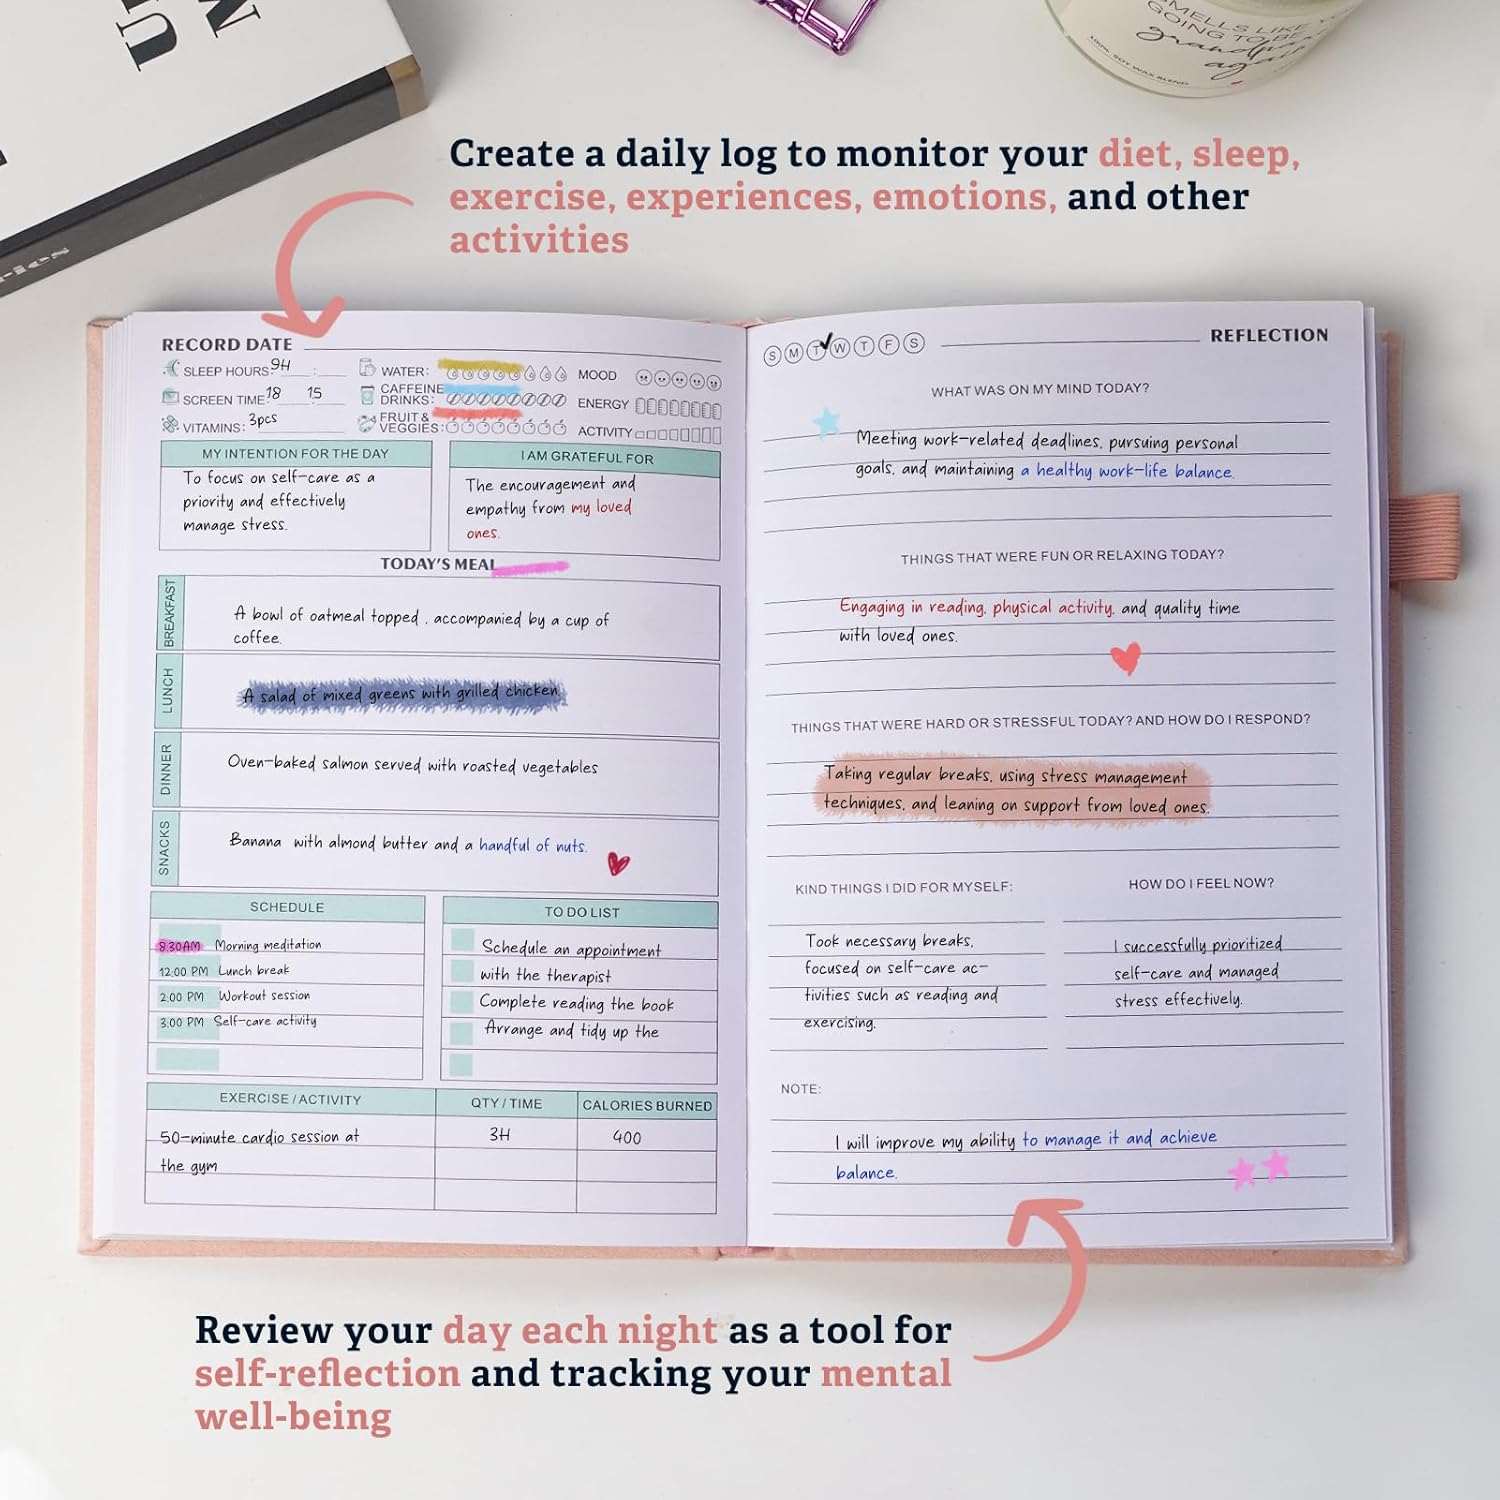 SMELLS LIKE
GOING TO BE
grandpa
again
100% SOY WAX BLEND
Create a daily log to monitor your diet, sleep,
exercise, experiences, emotions, and other
activities
RECORD DATE
SLEEP HOURS: 9H :
SCREEN TIME: 18 15
VITAMINS: 3pcs
WATER:
CAFFEINE
DRINKS:
FRUIT &
VEGGIES:
MOOD
ENERGY
ACTIVITY
MY INTENTION FOR THE DAY
To focus on self-care as a
priority and effectively
manage stress.
I AM GRATEFUL FOR
The encouragement and
empathy from my loved
ones.
TODAY'S MEAL
BREAKFAST
A bowl of oatmeal topped , accompanied by a cup of
coffee.
LUNCH
A salad of mixed greens with grilled chicken.
DINNER
Oven-baked salmon served with roasted vegetables
SNACKS
Banana with almond butter and a handful of nuts.
SCHEDULE
8:30AM Morning meditation
12:00 PM Lunch break
2:00 PM Workout session
3:00 PM Self-care activity
TO DO LIST
Schedule an appointment
with the therapist
Complete reading the book
Arrange and tidy up the
EXERCISE / ACTIVITY QTY / TIME CALORIES BURNED
50-minute cardio session at 3H 400
the gym
S M T W T F S
REFLECTION
WHAT WAS ON MY MIND TODAY?
Meeting work-related deadlines, pursuing personal
goals, and maintaining a healthy work-life balance.
THINGS THAT WERE FUN OR RELAXING TODAY?
Engaging in reading, physical activity, and quality time
with loved ones.
THINGS THAT WERE HARD OR STRESSFUL TODAY? AND HOW DO I RESPOND?
Taking regular breaks, using stress management
techniques, and leaning on support from loved ones.
KIND THINGS I DID FOR MYSELF:
Took necessary breaks,
focused on self-care ac-
tivities such as reading and
exercising.
HOW DO I FEEL NOW?
I successfully prioritized
self-care and managed
stress effectively.
NOTE:
I will improve my ability to manage it and achieve
balance.
Review your day each night as a tool for
self-reflection and tracking your mental
well-being